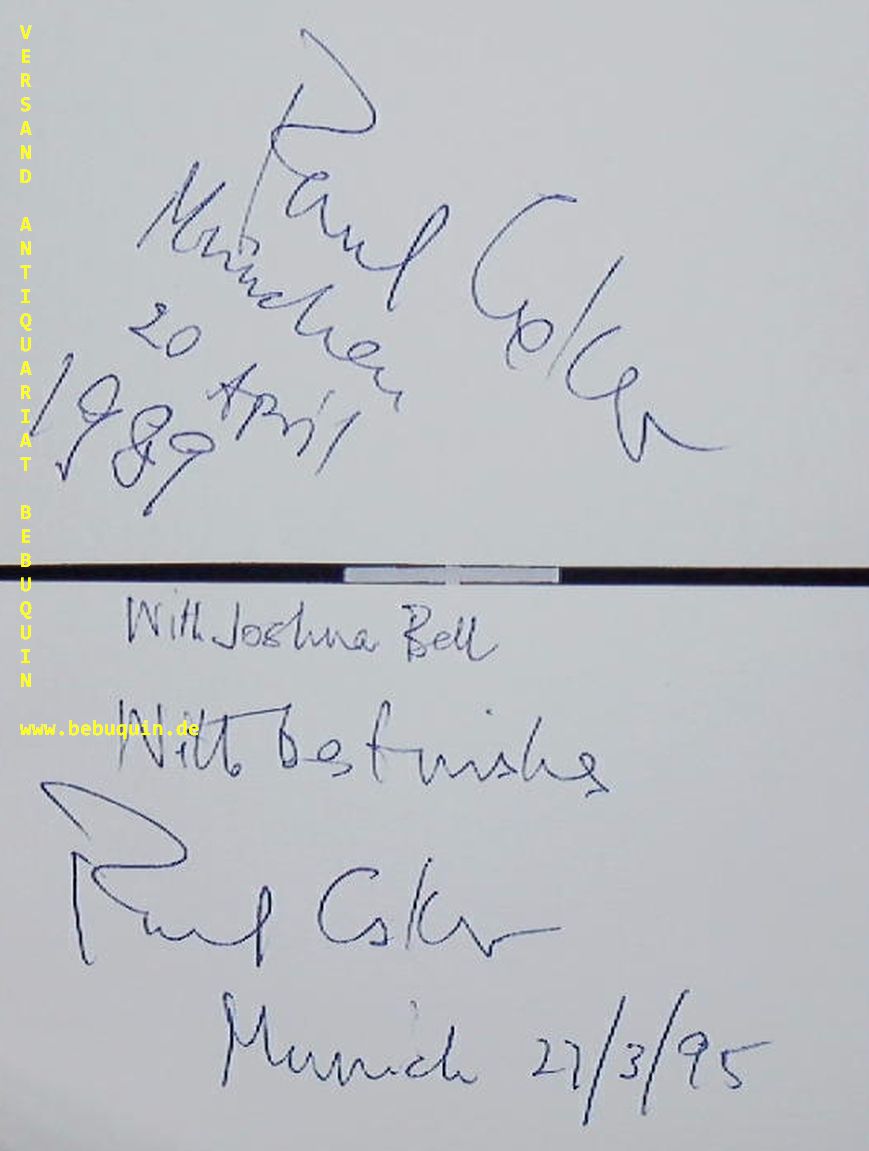 Paul Coker
München
20 April
1989
With Joshua Bell
With best wishes
Paul Coker
Munich 27/3/95
VERSAND ANTIQUARIAT BEBUQUIN
www.bebuquin.de